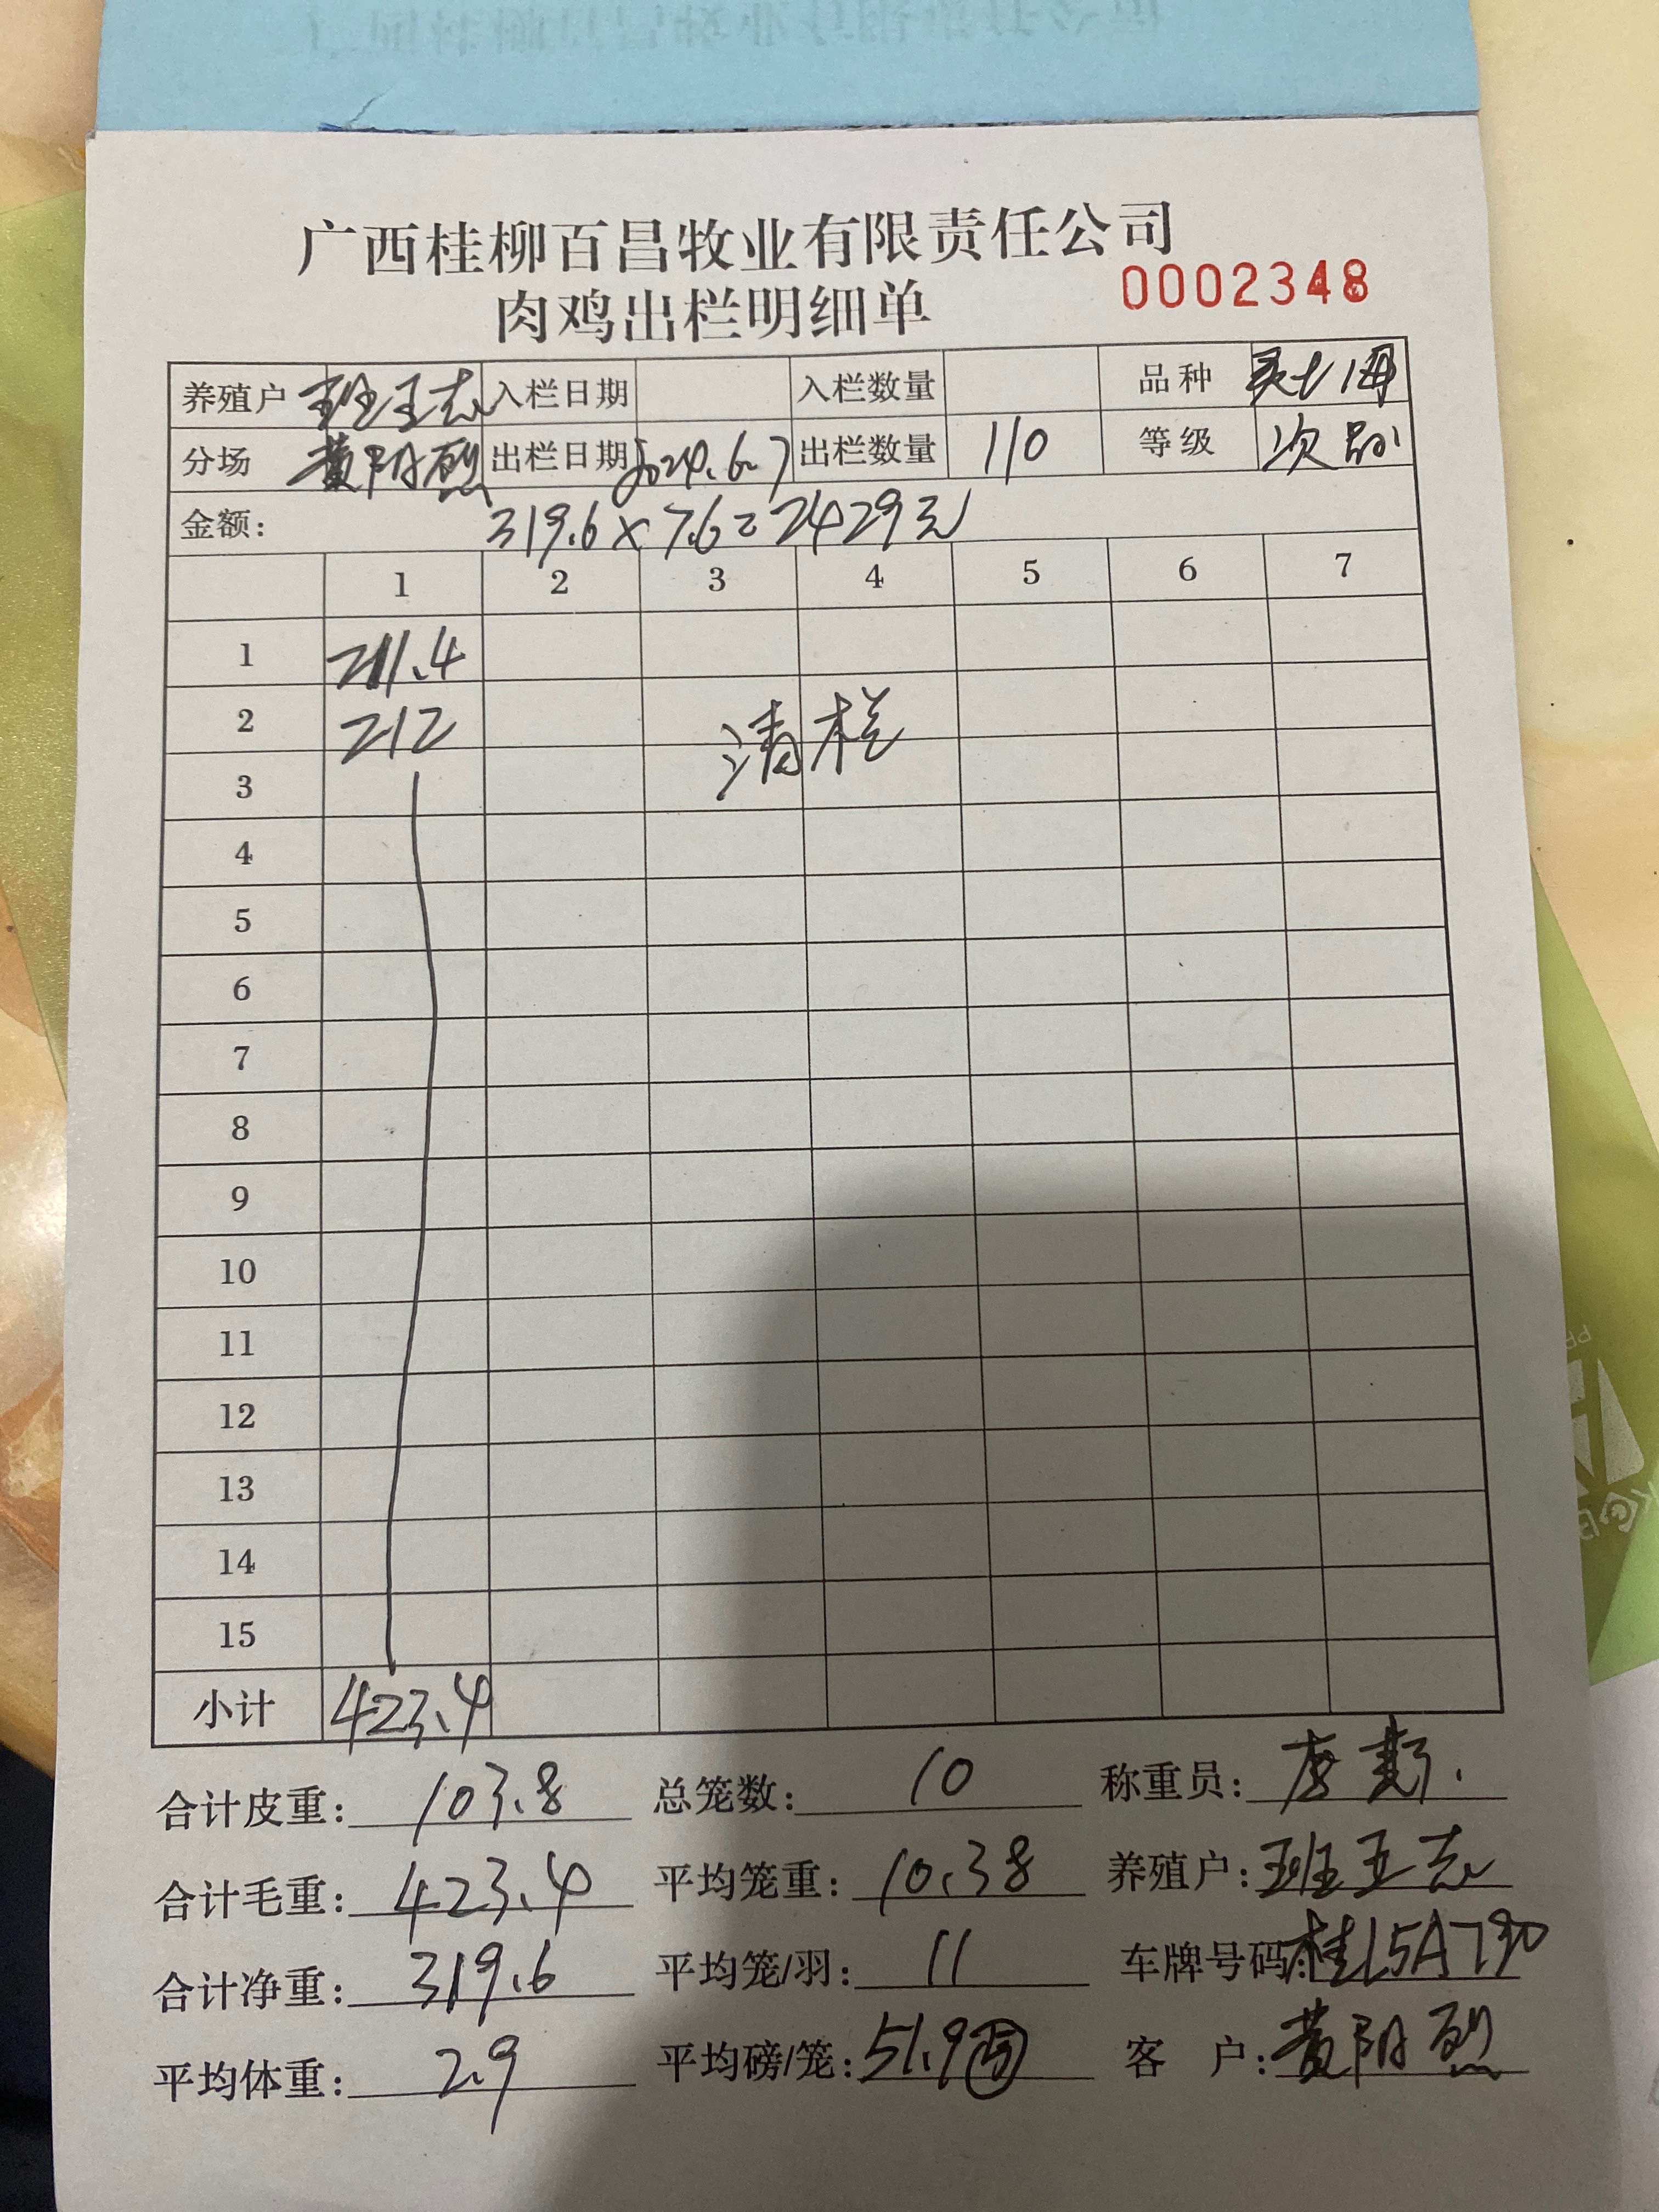 广西桂柳百昌牧业有限责任公司
肉鸡出栏明细单 0002348
养殖户 班王志 入栏日期 入栏数量 品种 灵土1母
分场 黄阳烈 出栏日期 2024.6.7 出栏数量 110 等级 次品
金额: 319.6×7.6=2429元
1 2 3 4 5 6 7
1 211.4
2 212 清栏
3
4
5
6
7
8
9
10
11
12
13
14
15
小计 423.4
合计皮重: 103.8 总笼数: 10 称重员:
合计毛重: 423.4 平均笼重: 10.38 养殖户: 班王志
合计净重: 319.6 平均笼/羽: 11 车牌号码: 桂L5A790
平均体重: 2.9 平均磅/笼: 51.9 客 户: 黄阳烈